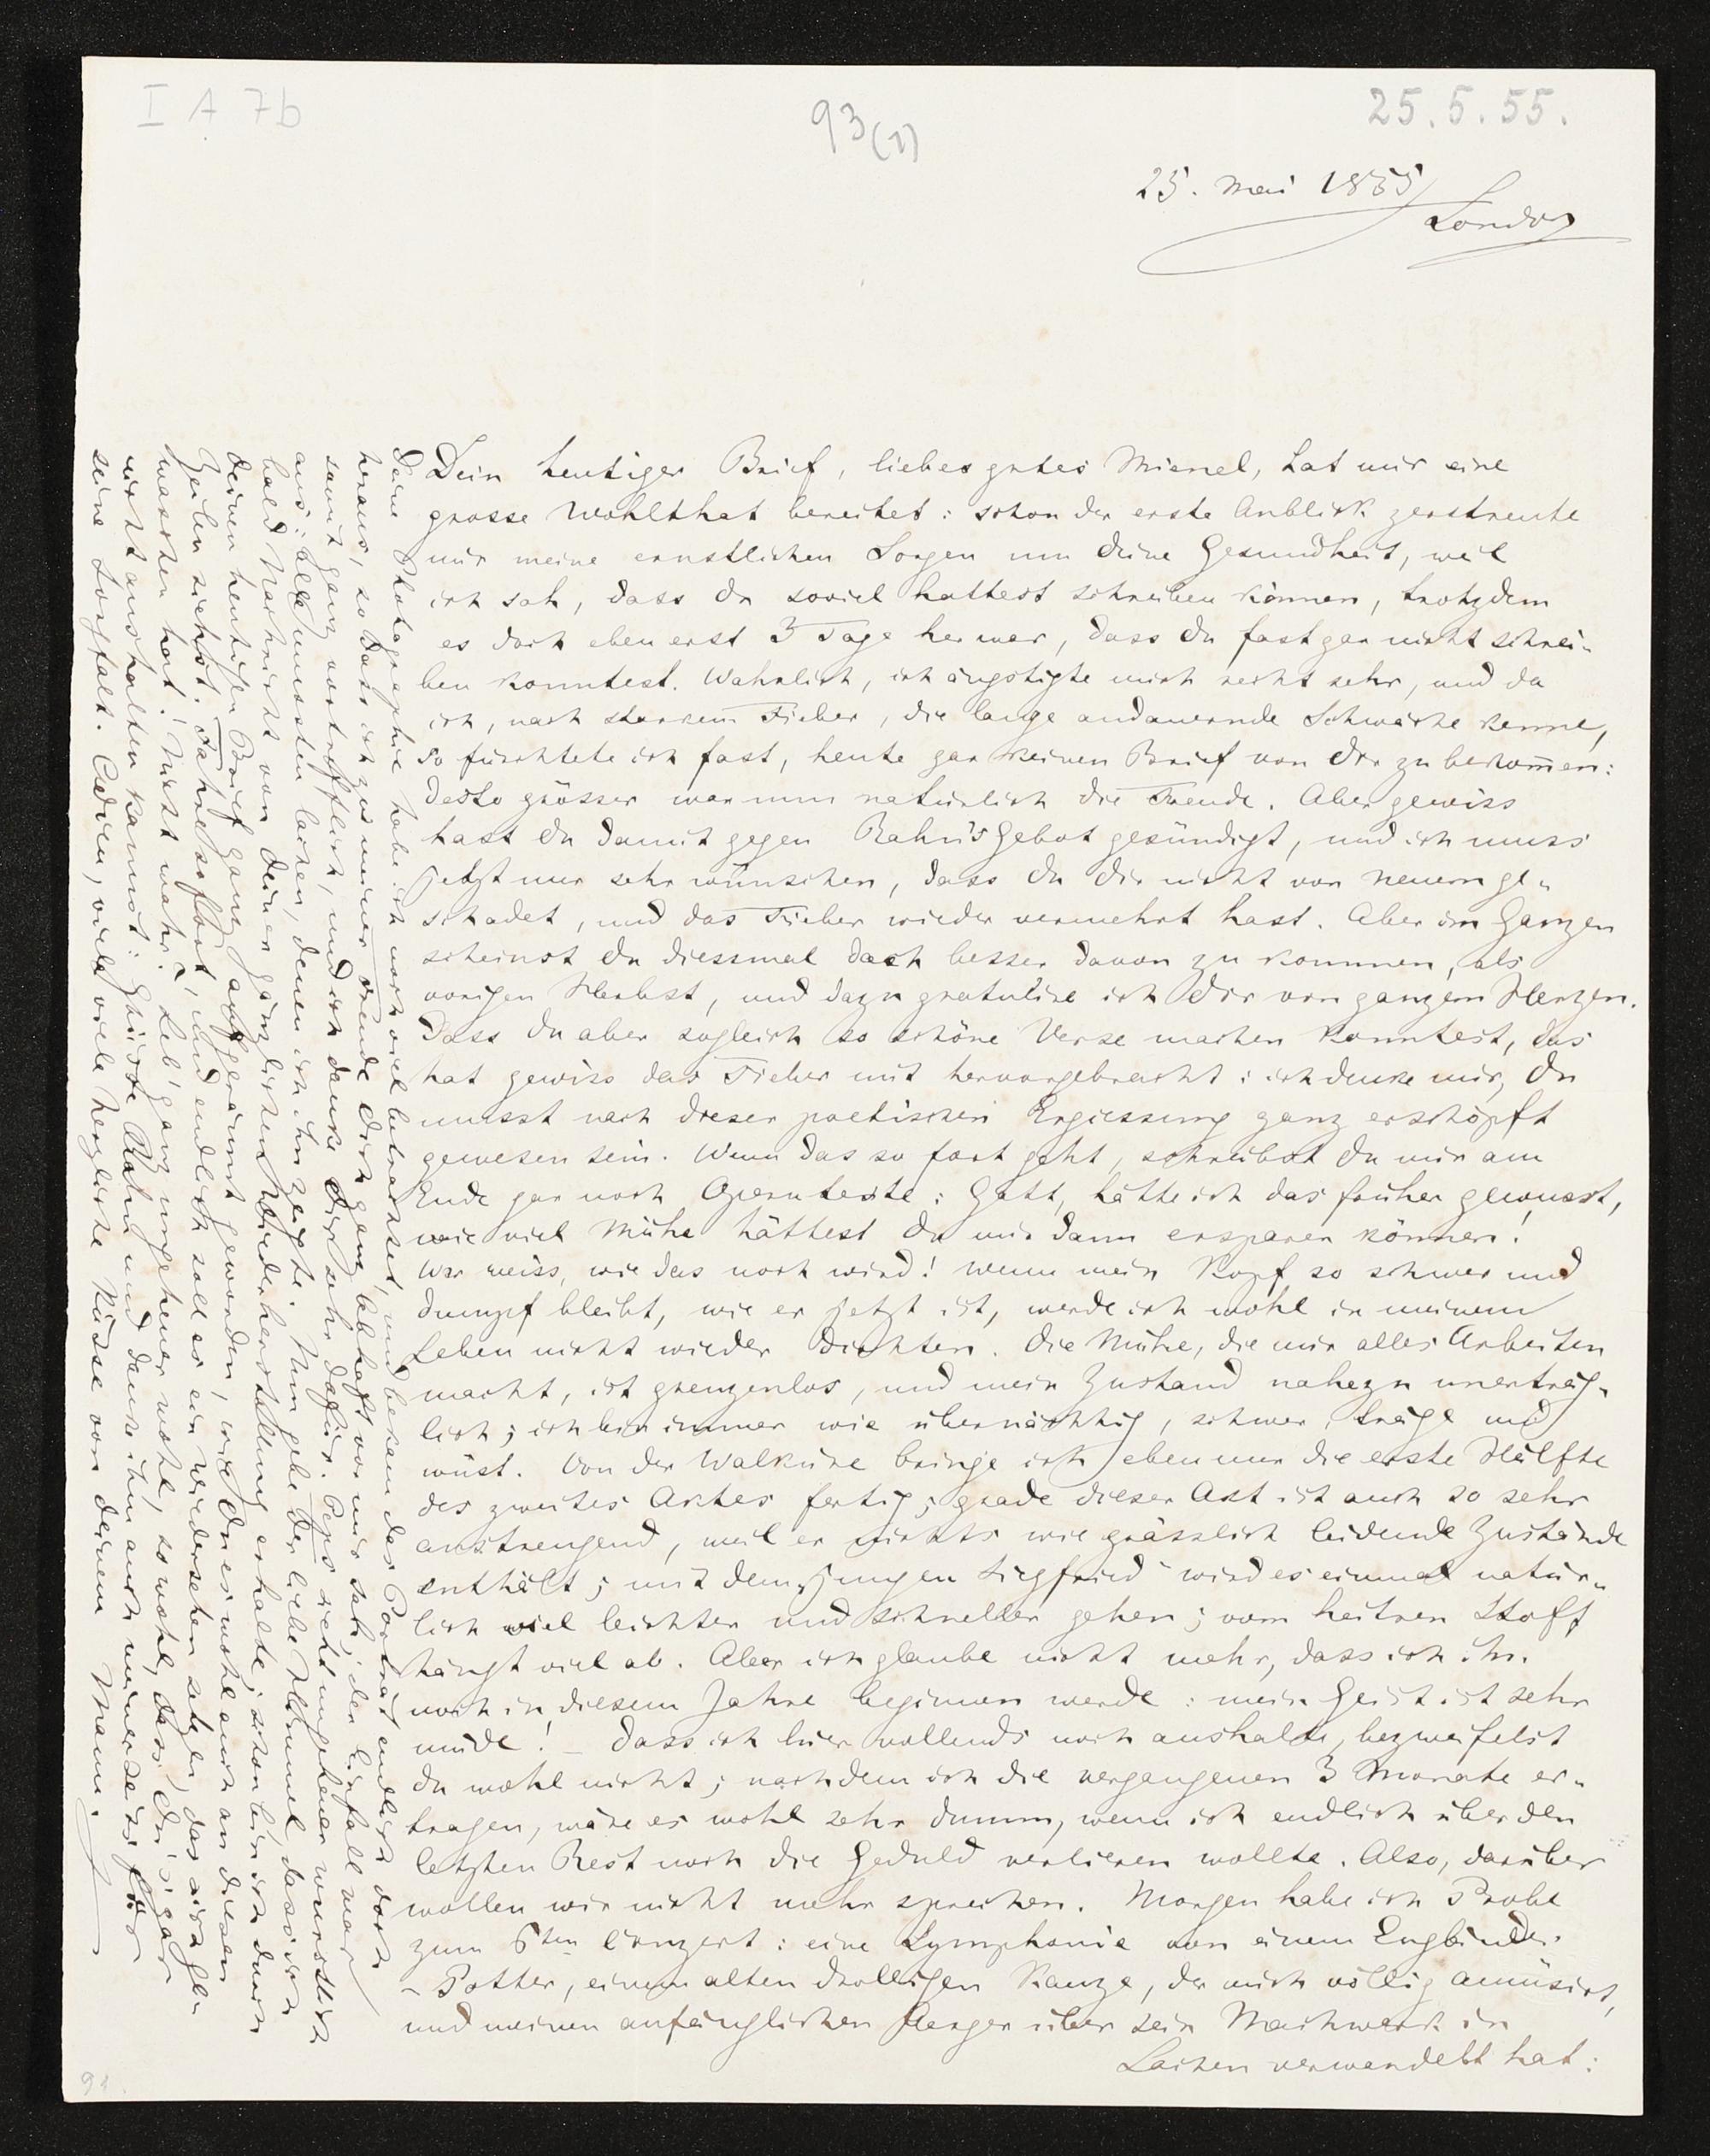 I A 7b
93(1)
25.5.55.
25. Mai 1855
London
Dein heutiger Brief, liebes gutes Mienel, hat mir eine
grosse Wohlthat bereitet: schon der erste Anblick zerstreute
mir meine ernstlichen Sorgen um deine Gesundheit, weil
ich sah, dass du soviel hattest schreiben können, trotzdem
es doch eben erst 3 Tage her war, dass du fast gar nicht schrei-
ben konntest. Wahrlich, ich ängstigte mich recht sehr, und da
ich, nach starkem Fieber, die lange andauernde Schwäche kenne,
so fürchtete ich fast, heute gar keinen Brief von dir zu bekom̄en:
desto grösser war nun natürlich die Freude. Aber gewiss
hast du damit gegen Rahn's Gebot gesündigt, und ich muss
jetzt nur sehr wünschen, dass du dir nicht von neuem ge-
schadet, und das Fieber wieder vermehrt hast. Aber im Ganzen
scheinst du diessmal doch besser davon zu kommen, als
vorigen Herbst, und dazu gratulire ich dir von ganzem Herzen.
Dass du aber sogleich so schöne Verse machen konntest, das
hat gewiss das Fieber mit hervorgebracht: ich denke mir, du
musst nach dieser poetischen Ergiessung ganz erschöpft
gewesen sein. Wenn das so fort geht, schreibst du mir am
Ende gar noch Operntexte: Gott, hätte ich das früher gewusst,
wie viel Mühe hättest du mir dann ersparen können!
Wer weiss, wie das noch wird! Wenn mein Kopf so schwer und
dumpf bleibt, wie er jetzt ist, werde ich wohl in meinem
Leben nicht wieder dichten. Die Mühe, die mir alles Arbeiten
macht, ist grenzenlos, und mein Zustand nahezu unerträg-
lich; ich bin immer wie übernächtig, schwer, träge und
wüst. Von der Walküre bringe ich eben nur die erste Hälfte
des zweites Aktes fertig; grade dieser Akt ist auch so sehr
anstrengend, weil er nichts wie grässlich leidende Zustände
enthält; mit dem „jungen Siegfried" wird es einmal natür-
lich viel leichter und schneller gehen; vom heitren Stoff
hängt viel ab. Aber ich glaube nicht mehr, dass ich ihn
noch in diesem Jahre beginnen werde: mein Geist ist sehr
müde! – Dass ich hier vollends noch aushalte, bezweifelst
du wohl nicht; nachdem ich die vergangenen 3 Monate er-
tragen, wäre es wohl sehr dumm, wenn ich endlich über den
letzten Rest noch die Geduld verlieren wollte. Also, darüber
wollen wir nicht mehr sprechen. Morgen habe ich Probe
zum 6ten Conzert: eine Symphonie von einem Engländer
– Potter, einem alten drolligen Kauze, der mich völlig amüsirt,
und meinen anfänglichen Aerger über sein Machwerk in
Lachen verwandelt hat:
Deine Photographie habe ich noch viel betrachtet, und bekam das Portrait endlich doch
heraus, so dass ich zu meiner Freude dich ganz lebhaft vor mir sah; der Einfall war
somit ganz vortrefflich, und ich danke dir sehr dafür. Peps sieht ungeheuer wurstlich
aus: alle mussten lachen, denen ich ihn zeigte. Nun gebe der liebe Himmel, dass ich
bald Nachricht von deiner gänzlichen Wiederherstellung erhalte; schon bin ich durch
deinen heutigen Brief ganz aufgeräumt geworden, wie du es wohl auch an diesen
Zeilen siehst. Fahre so fort, und endlich soll es ein Wiedersehen setzen, das sich gew
waschen hat! Nicht wahr? Leb' ganz ungeheuer wohl, so wohl, dass du's gar
nicht aushalten kannst: Grüsse Rahn und dank ihm auch meinerseits für
seine Sorgfalt. Adieu, viele viele herzliche Küsse von deinem Mann.